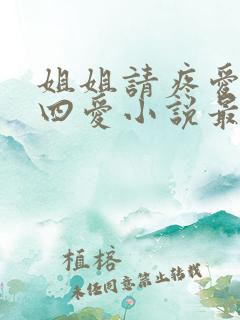 姐姐請疼愛
四愛小說最
植榕
未任同意禁止转載